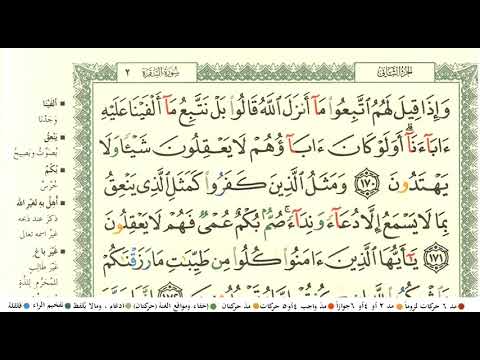 الجزء الثاني
سورة البقرة
٢
وَإِذَا قِيلَ لَهُمُ ٱتَّبِعُوا۟ مَآ أَنزَلَ ٱللَّهُ قَالُوا۟ بَلْ نَتَّبِعُ مَآ أَلْفَيْنَا عَلَيْهِ
ءَابَآءَنَآ ۗ أَوَلَوْ كَانَ ءَابَآؤُهُمْ لَا يَعْقِلُونَ شَيْـًٔا وَلَا
يَهْتَدُونَ ١٧٠ وَمَثَلُ ٱلَّذِينَ كَفَرُوا۟ كَمَثَلِ ٱلَّذِى يَنْعِقُ
بِمَا لَا يَسْمَعُ إِلَّا دُعَآءً وَنِدَآءً ۚ صُمٌّۢ بُكْمٌ عُمْىٌ فَهُمْ لَا يَعْقِلُونَ
١٧١ يَـٰٓأَيُّهَا ٱلَّذِينَ ءَامَنُوا۟ كُلُوا۟ مِن طَيِّبَـٰتِ مَا رَزَقْنَـٰكُمْ
ألفينا
وجدنا
ينعق
يصوت ويصيح
بكم
خرس
أهل به لغير الله
ذكر عند ذبحه
غير اسمه تعالى
غير باغ
غير طالب
للمحرم للذة
مد ٦ حركات لزوما
مد ٢ أو ٤ أو ٦ جوازا
مد واجب ٤ أو ٥ حركات
مد حركتان
إخفاء، ومواقع الغنة (حركتان)
ادغام، ومالا يلفظ
تفخيم الراء
قلقلة